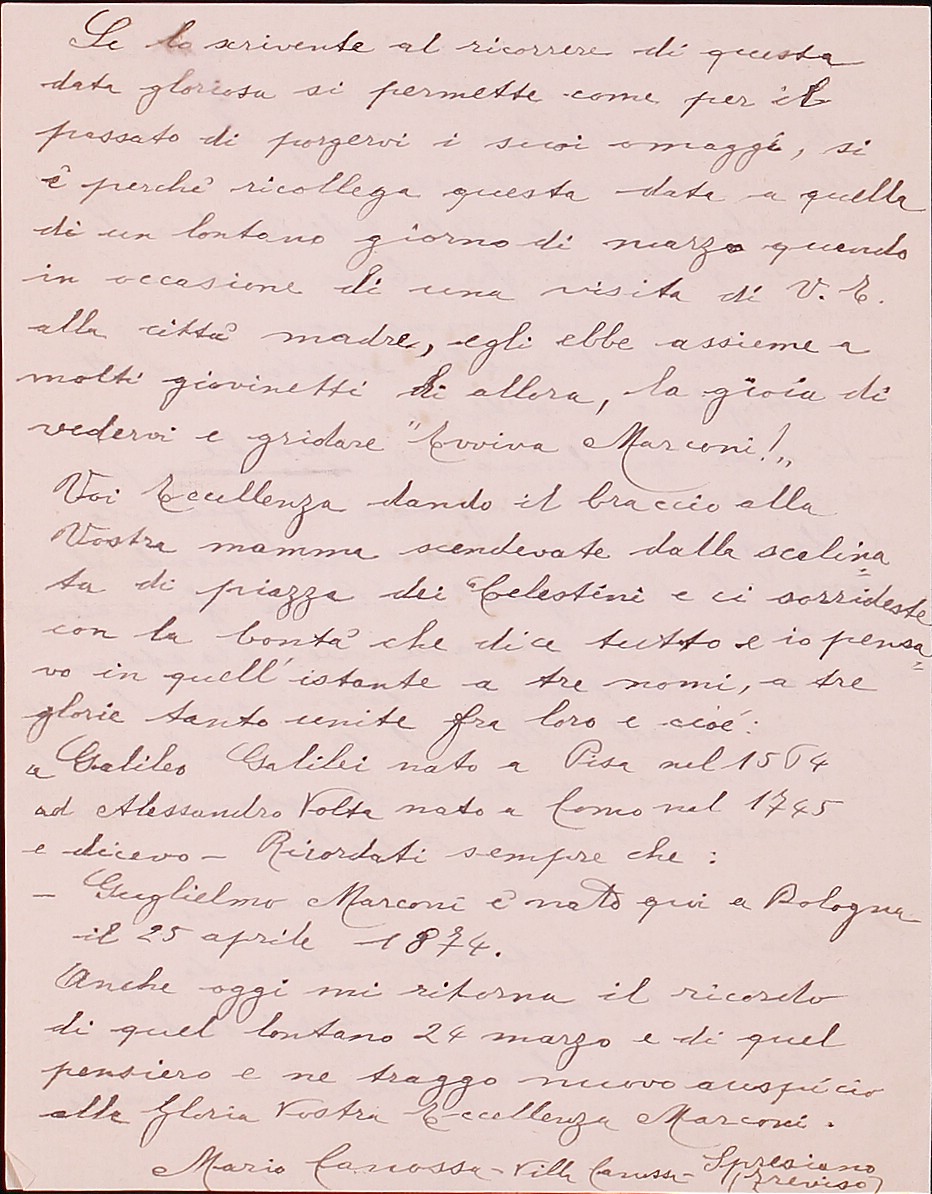 Se lo scrivente al ricorrere di questa
data gloriosa si permette come per il
passato di porgervi i suoi omaggi, si
è perchè ricollega questa data a quella
di un lontano giorno di marzo quando
in occasione di una visita di V. E.
alla città madre, egli ebbe assieme a
molti giovinetti di allora, la gioia di
vedervi e gridare "Evviva Marconi!„
Voi Eccellenza dando il braccio alla
Vostra mamma scendevate dalla scalina=
ta di piazza dei Celestini e ci sorrideste
con la bontà che dice tutto e io pensa=
vo in quell'istante a tre nomi, a tre
glorie tanto unite fra loro e cioé:
a Galileo Galilei nato a Pisa nel 1564
ad Alessandro Volta nato a Como nel 1745
e dicevo - Ricordati sempre che:
- Guglielmo Marconi è nato qui a Bologna
il 25 aprile 1874.
Anche oggi mi ritorna il ricordo
di quel lontano 24 marzo e di quel
pensiero e ne traggo nuovo auspicio
alla Gloria Vostra Eccellenza Marconi.
Mario Canossa - Villa Canossa - Spresiano
(Treviso)